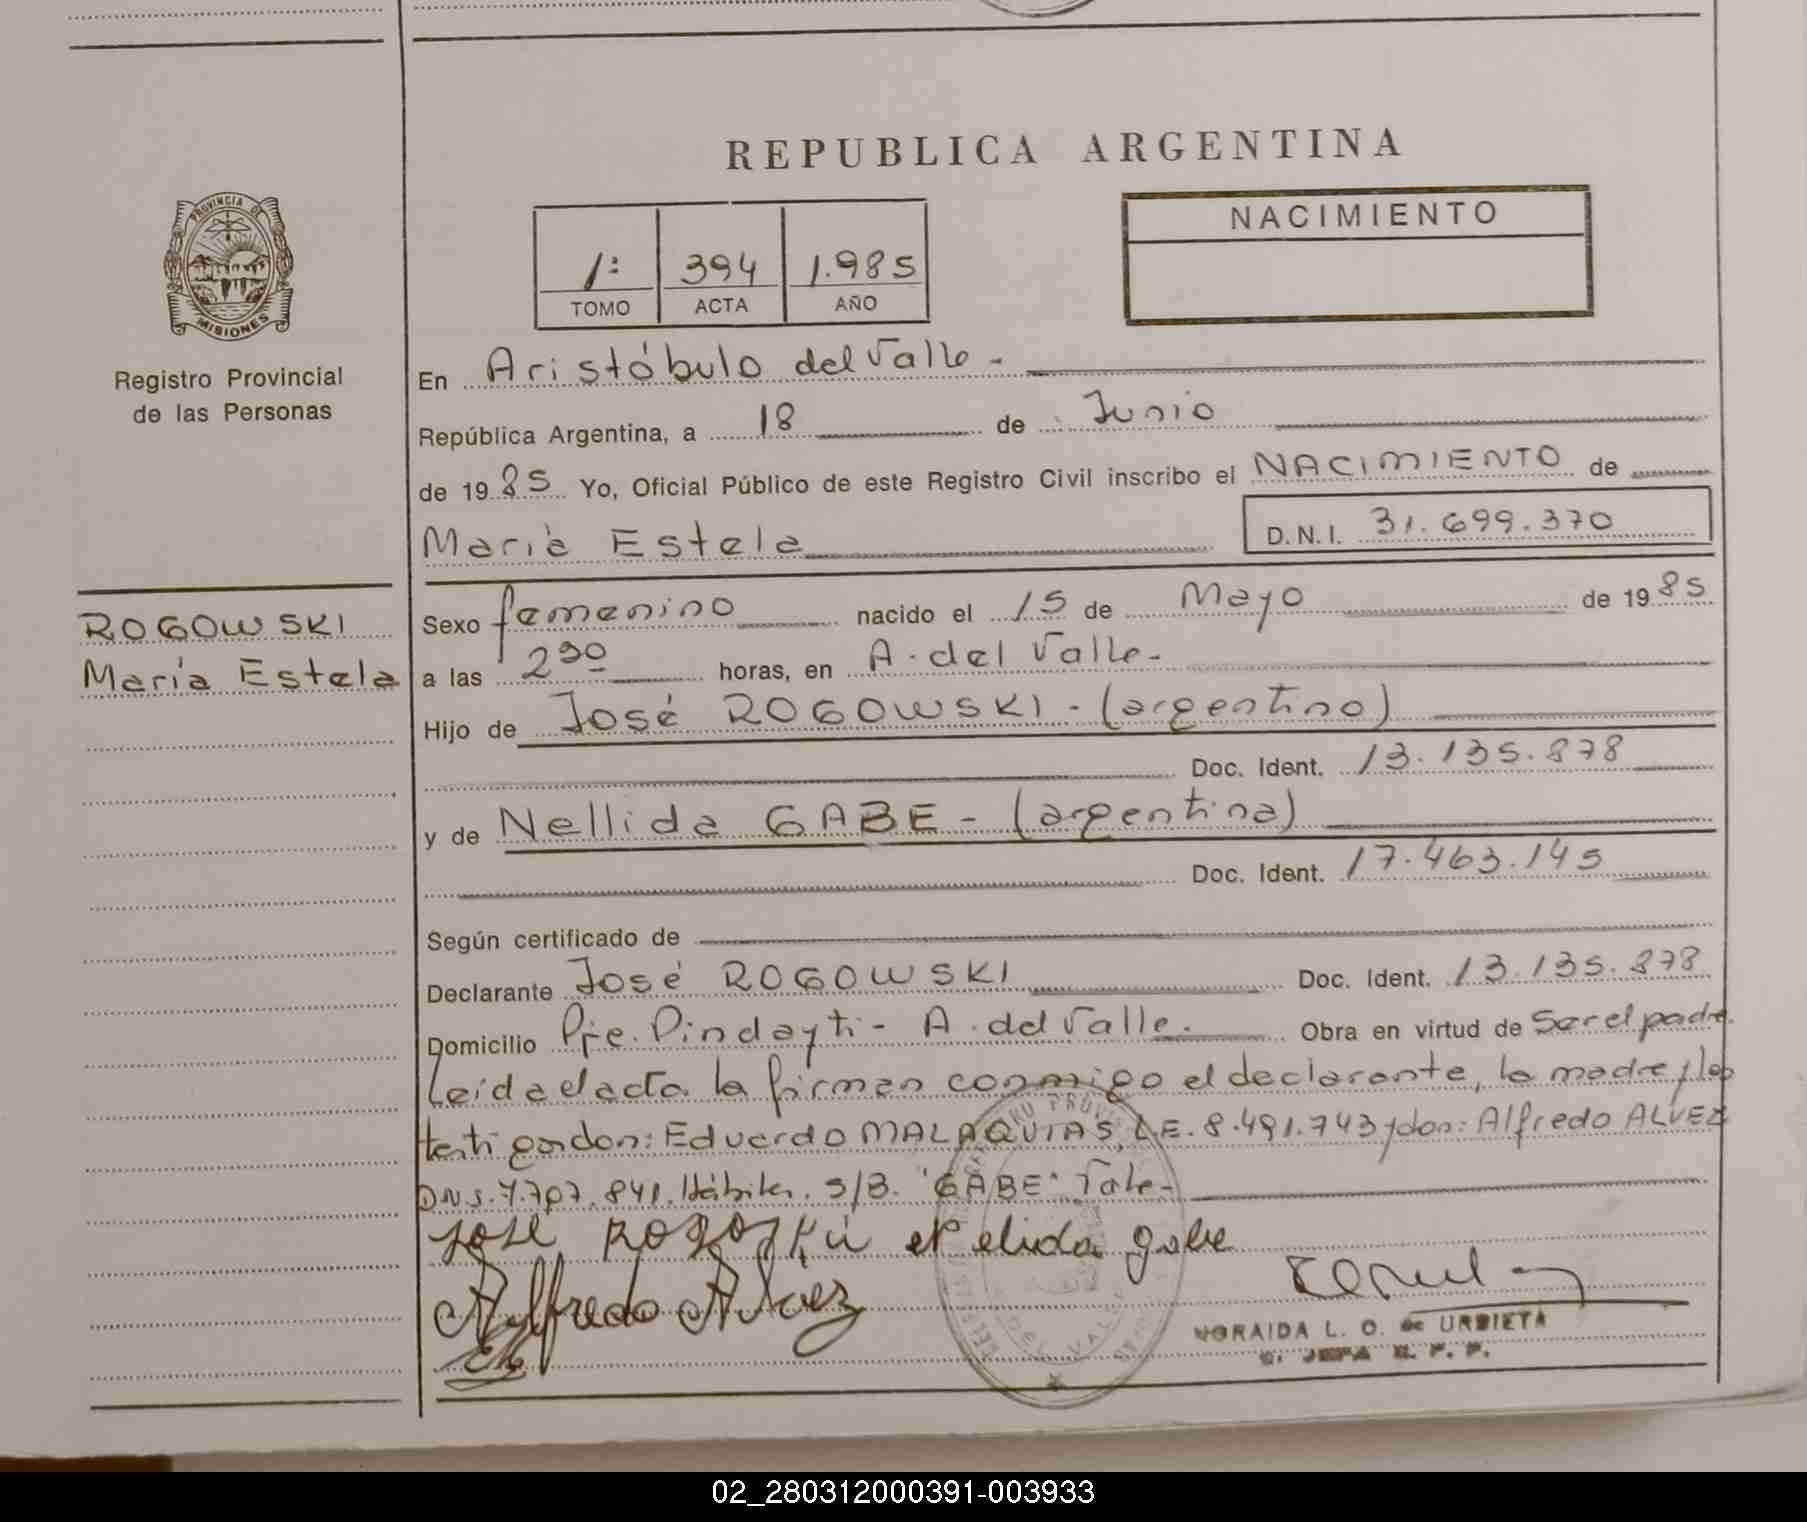 REPUBLICA ARGENTINA
PROVINCIA DE
MISIONES
Registro Provincial
de las Personas
ROGOWSKI
María Estela
1º 394 1.985
TOMO ACTA AÑO
NACIMIENTO
En Aristóbulo del Valle -
República Argentina, a 18 de Junio
de 1985 Yo, Oficial Público de este Registro Civil inscribo el NACIMIENTO de
María Estela D.N.I. 31.699.370
Sexo femenino nacido el 15 de Mayo de 1985
a las 2 30 horas, en A. del Valle -
Hijo de José ROGOWSKI - (argentino)
Doc. Ident. 13.135.878
y de Nellida GABE - (argentina)
Doc. Ident. 17.463.145
Según certificado de
Declarante José ROGOWSKI Doc. Ident. 13.135.878
Domicilio Pje. Pindayti - A. del Valle. Obra en virtud de Ser el padre.
Leída el acta la firman conmigo el declarante, la madre y los
testigos don: Eduardo MALAQUIAS, L.E. 8.491.743 y don: Alfredo ALVEZ
D.N.I. 7.707.841. Hábiles. S/B. "GABE" Vale -
José Nelida gabe
Alfredo Alvez
NORAIDA L. O. de URBIETA
JEFA R. P. P.
02_280312000391-003933